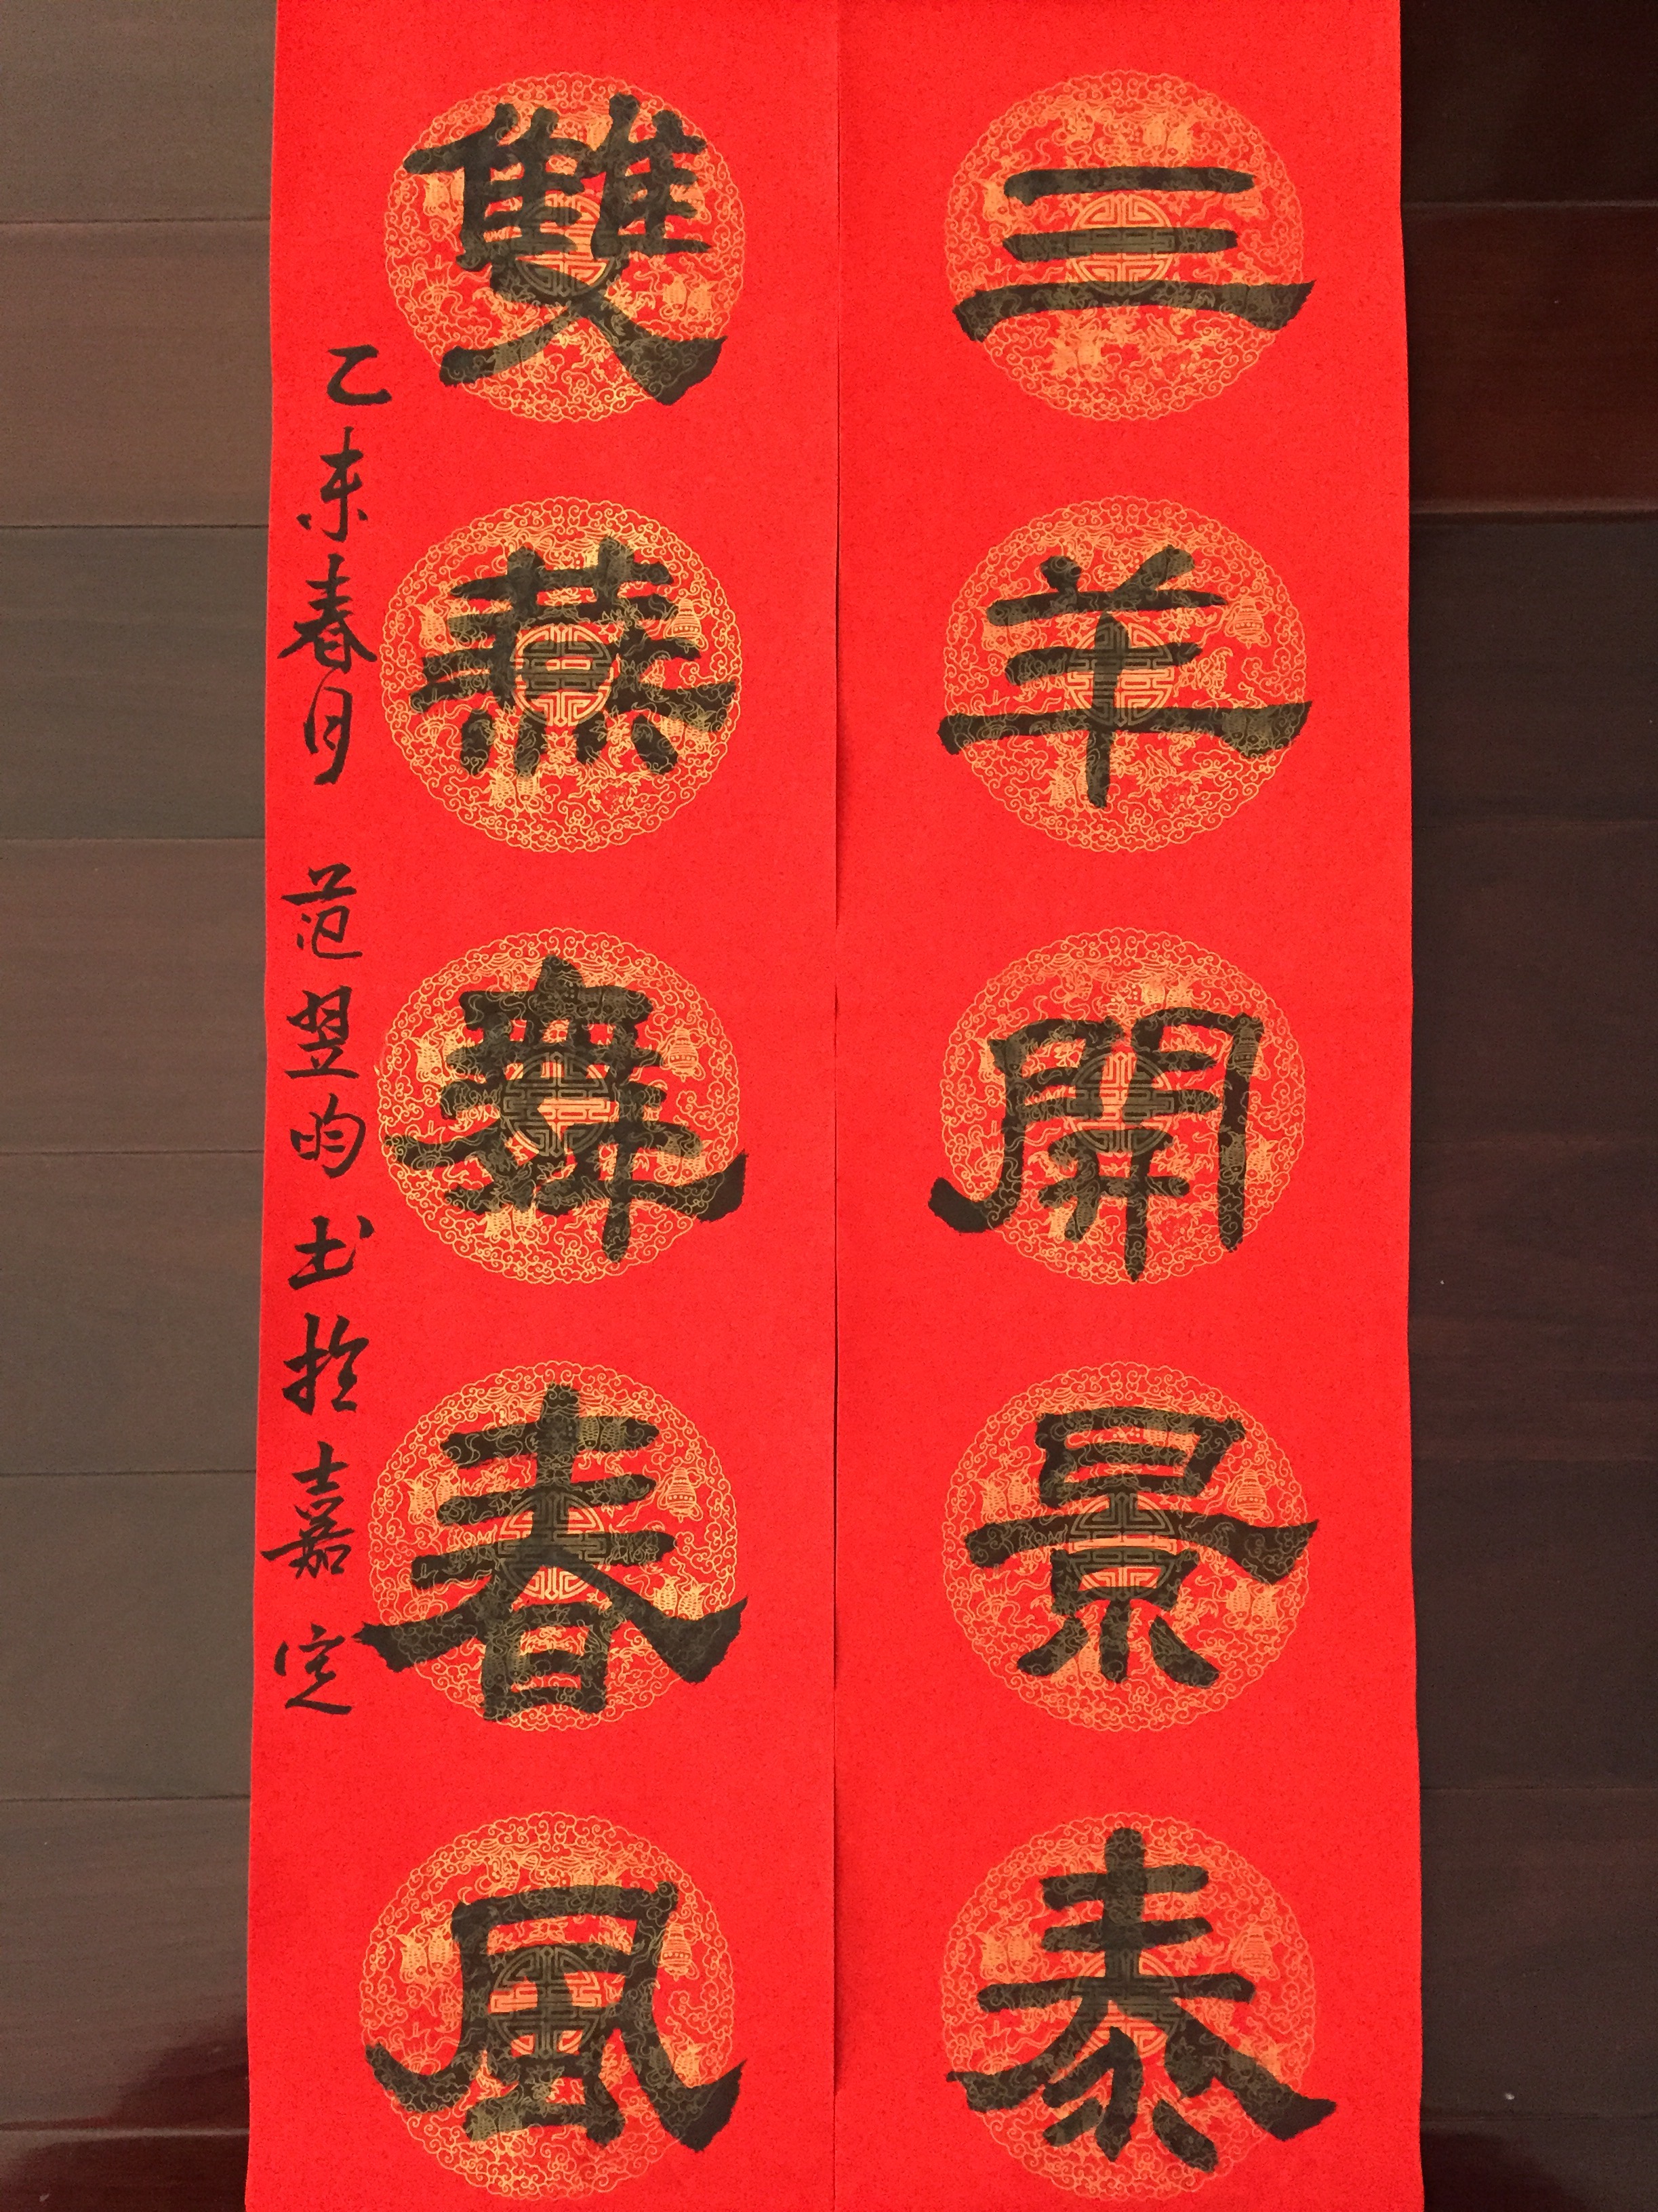 三羊開景泰
雙燕舞春風
乙未春月 范翌昀书於嘉定